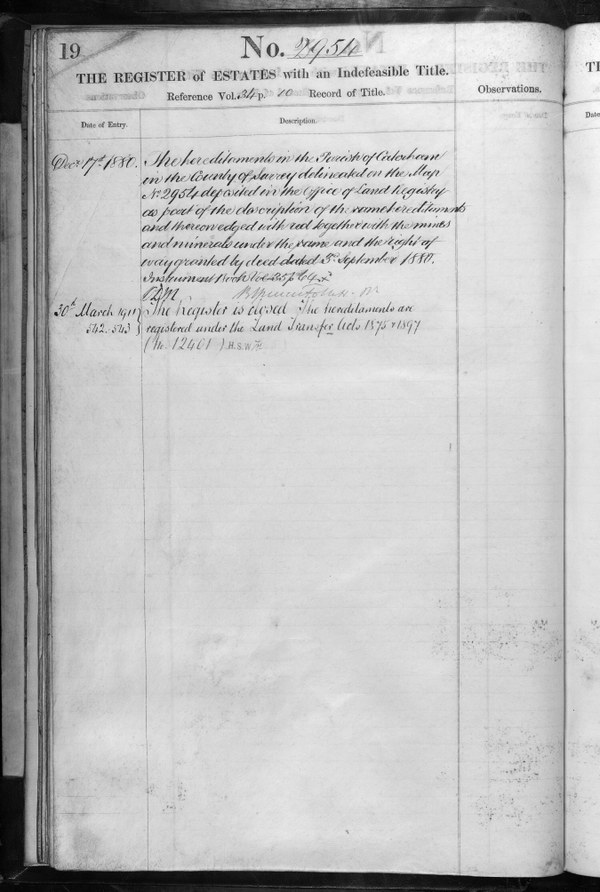 19
No. 2954
THE REGISTER of ESTATES with an Indefeasible Title.
Reference Vol. 24 p. 10 Record of Title.
Observations.
Date of Entry.
Description.
Decr 17th 1880.
The hereditaments in the Parish of Caterham
in the County of Surrey delineated on the Map
No 2954 deposited in the Office of Land Registry
as part of the description of the same hereditaments
and thereon edged with red together with the mines
and minerals under the same and the right of
way granted by deed dated 3d September 1880.
Instrument Book Vol 35 p
30th March 1911
542.543
The Register is closed The hereditaments are
registered under the Land Transfer Acts 1875 & 1897
(No. 12401) H.S.W.